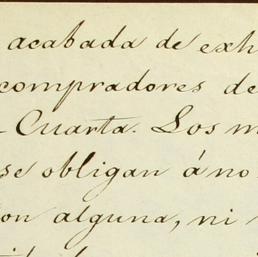 acabada de exh
compradores de
Cuarta. Los m
se obligan á no
on alguna, ni